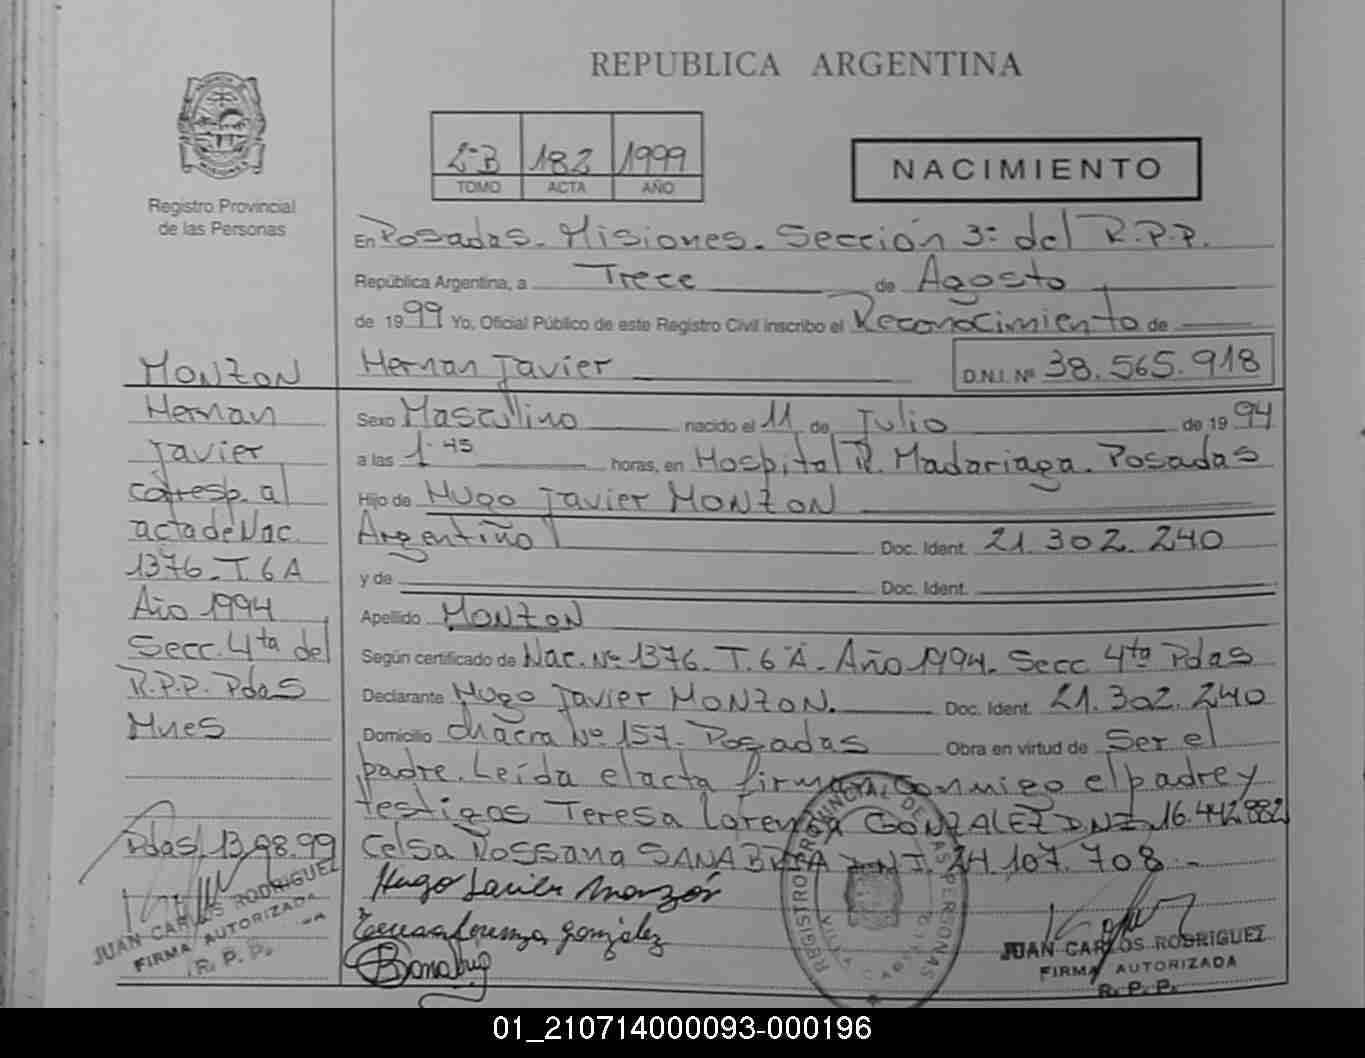 REPUBLICA ARGENTINA
2ºB 182 1999
TOMO ACTA AÑO
NACIMIENTO
Registro Provincial
de las Personas
En Posadas. Misiones. Sección 3ª del R.P.P.
República Argentina, a Trece de Agosto
de 1999 Yo, Oficial Público de este Registro Civil inscribo el Reconocimiento de
Hernan Javier D.N.I. Nº 38.565.918
Sexo Masculino nacido el 11 de Julio de 1994
a las 1.45 horas, en Hospital R. Madariaga. Posadas
Hijo de Hugo Javier MONZON
Argentino Doc. Ident. 21.302.240
y de Doc. Ident.
Apellido MONZON
Según certificado de Nac. Nº 1376. T. 6ºA. Año 1994. Secc 4ta Pdas
Declarante Hugo Javier MONZON. Doc. Ident. 21.302.240
Domicilio Chacra Nº 157. Posadas Obra en virtud de Ser el
padre. Leída el acta firman conmigo el padre y
testigos Teresa Lorenza GONZALEZ DNI 16.442.882
Celsa Rossana SANABRIA DNI. 24.107.708.-
Hugo Javier Monzón
Teresa Lorenza González
MONZON
Hernan
Javier
corresp. al
acta de Nac.
1376. T. 6 A
Año 1994
Secc. 4ta del
R.P.P. Pdas
Mnes
Pdas, 13.08.99
JUAN CARLOS RODRIGUEZ
FIRMA AUTORIZADA
R. P. P.
REGISTRO PROVINCIAL DE LAS PERSONAS
JUAN CARLOS RODRIGUEZ
FIRMA AUTORIZADA
R. P. P.
01_210714000093-000196